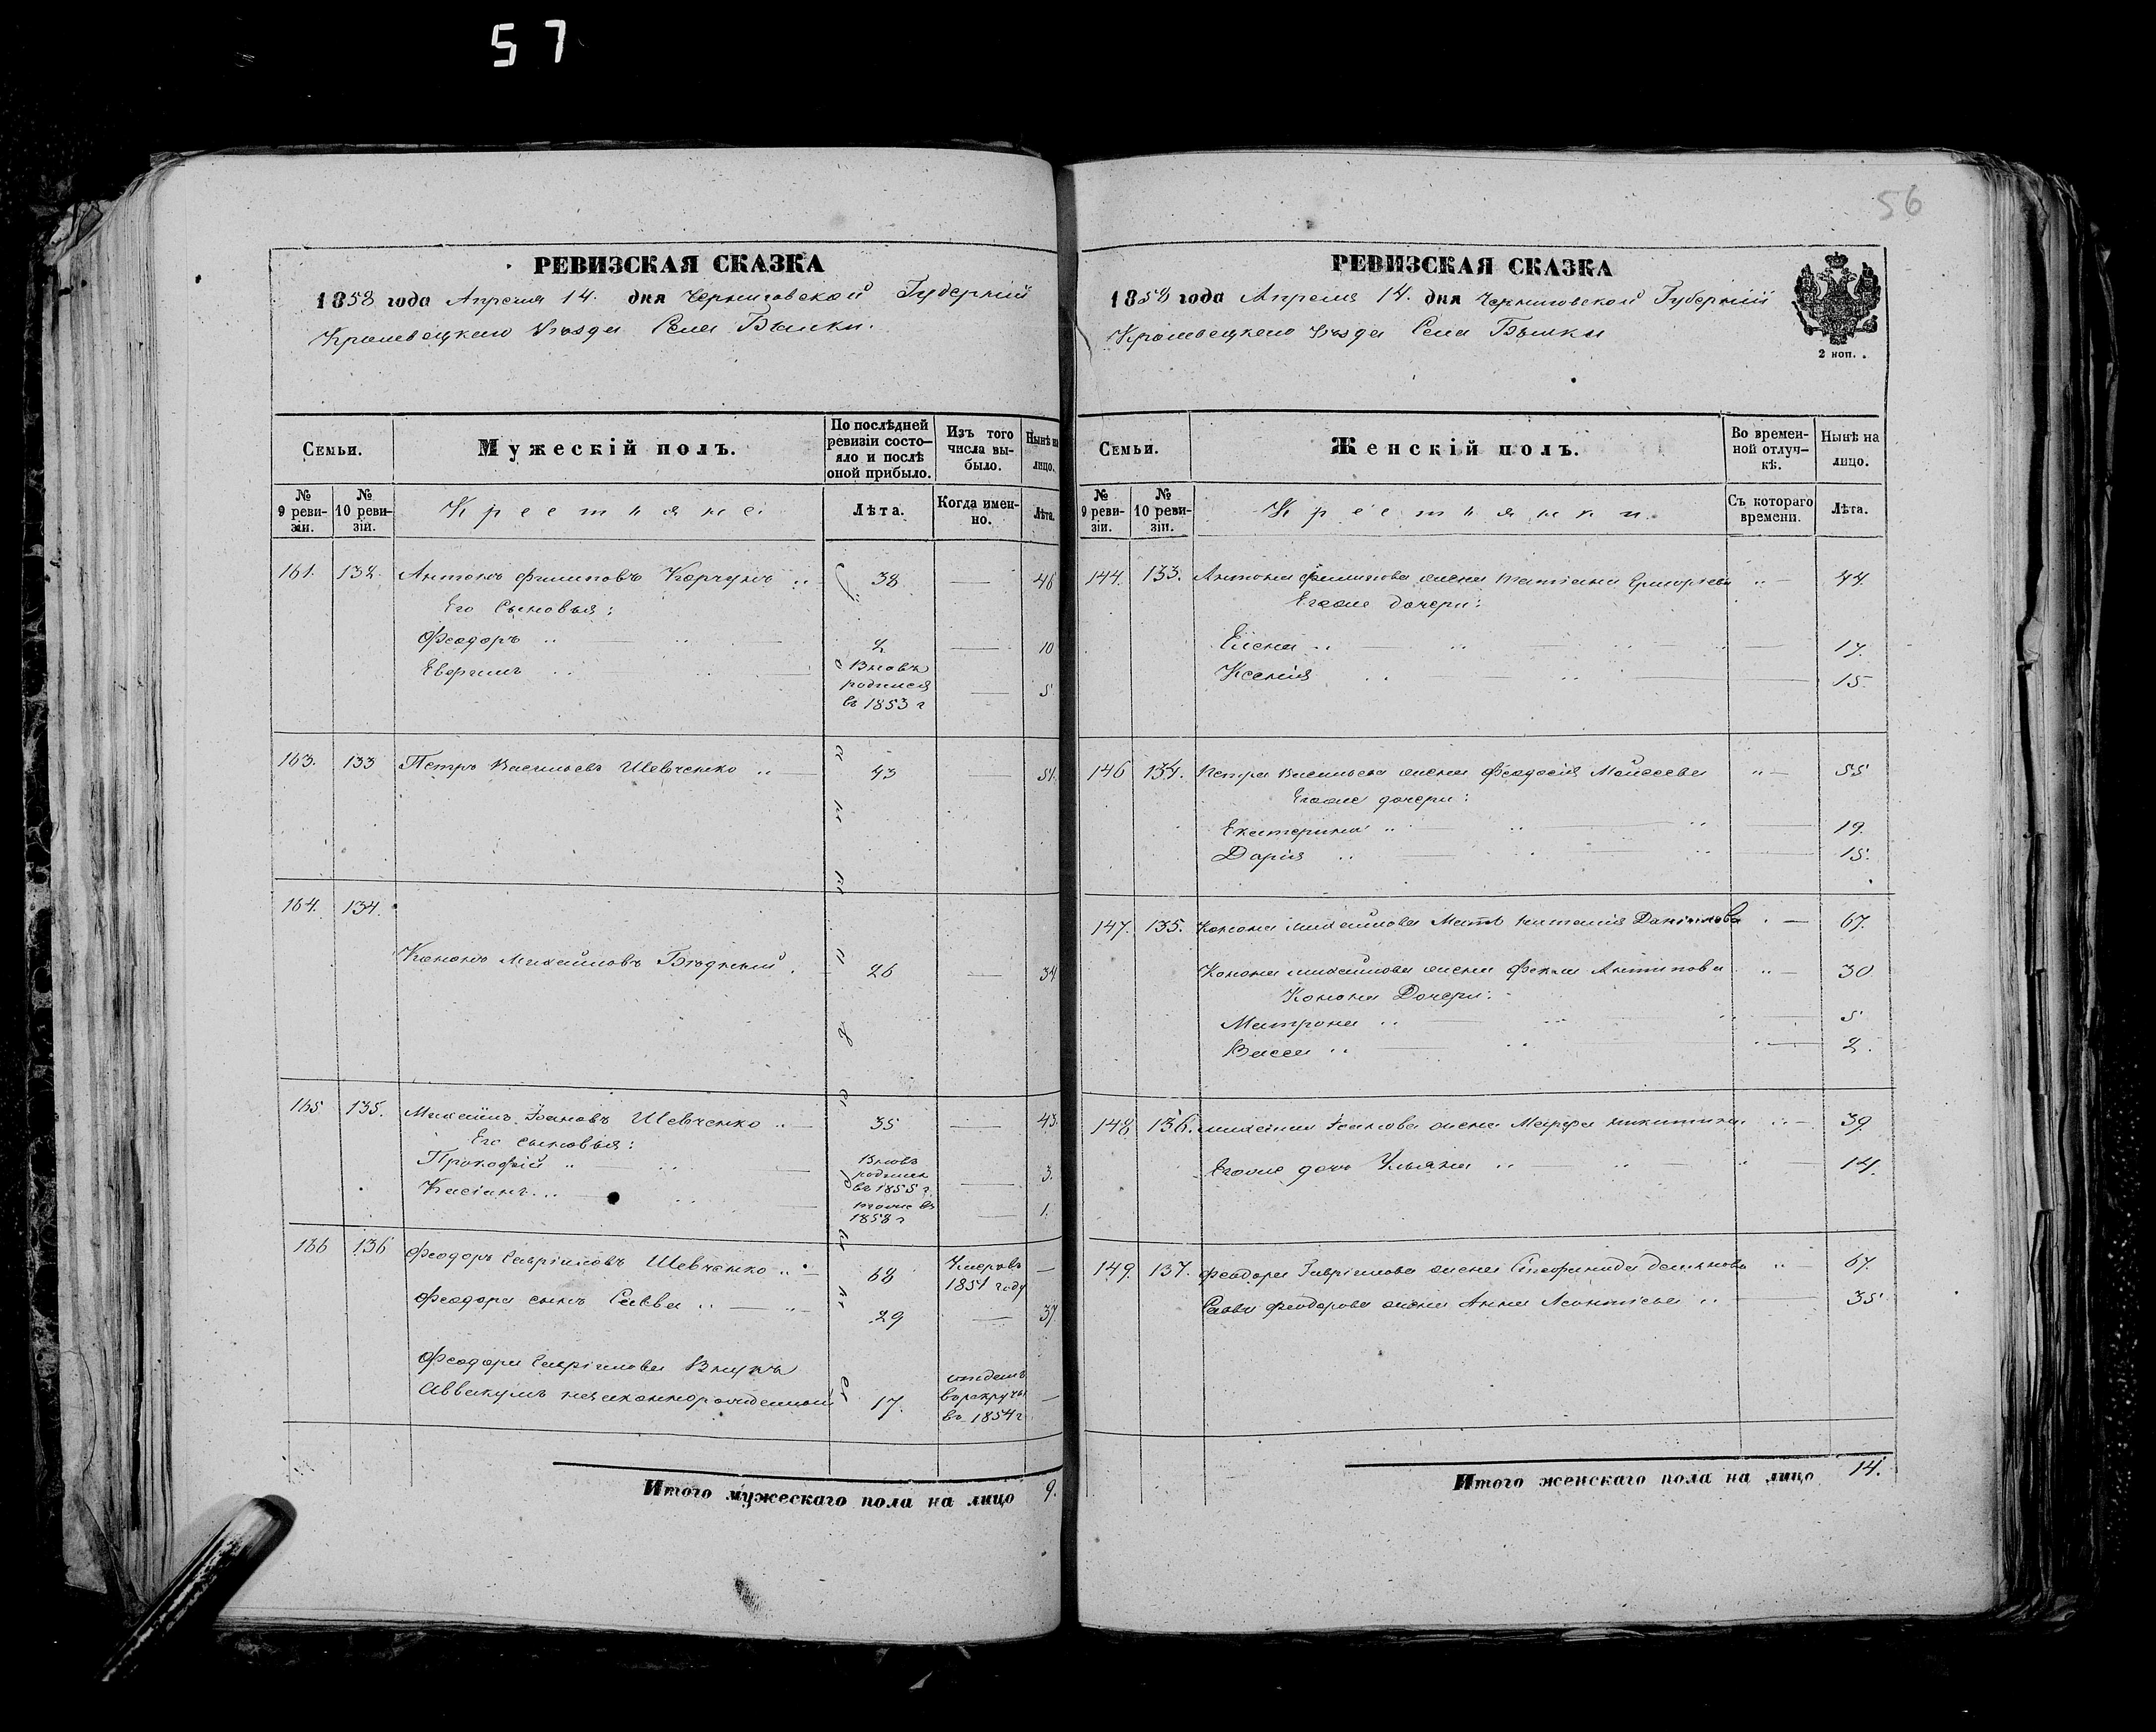 57
56
РЕВИЗСКАЯ СКАЗКА
1858 года Апреля 14. дня Черниговской Губерніи
Кролевецкаго Уѣзда Села Бѣлки.
Семьи.
Мужескій полъ.
По послѣдней ревизіи состояло и послѣ оной прибыло.
Изъ того числа выбыло.
Нынѣ на лицо.
№ 9 ревизіи.
№ 10 ревизіи.
Крестьяне
Лѣта.
Когда именно.
Лѣта.
161. 132. Антонъ Филиповъ Корчунъ 38 — 46
Его Сыновья:
Феодоръ 2 — 10
Евфимъ Вновь родился въ 1853 г — 5
163. 133 Петръ Васильевъ Шевченко 43 — 51.
164. 134.
Кононъ Михайловъ Бѣдный 26 — 34
165 135. Михайлъ Ивановъ Шевченко 35 — 43.
Его сыновья:
Прокофій Вновь родился въ 1855 г. — 3.
Касіянъ тоже въ 1858 г — 1.
166 136 Феодоръ Гавріиловъ Шевченко 68 Умеръ въ 1851 году —
Феодора сынъ Савва 29 — 37
Феодора Гавріилова Внукъ
Аввакумъ незаконнорожденный 17. отданъ въ рекруты въ 1854 г —
Итого мужескаго пола на лицо 9.
РЕВИЗСКАЯ СКАЗКА
1858 года Апреля 14. дня Черниговской Губерніи
Кролевецкаго Уѣзда Села Бѣлки
2 коп.
Семьи.
Женскій полъ.
Во временной отлучкѣ.
Нынѣ на лицо.
№ 9 ревизіи.
№ 10 ревизіи.
Крестьянки.
Съ котораго времени.
Лѣта.
144. 133. Антона Филипова жена Татіана Григорьева — 44
Егоже дочери:
Елена — 17.
Ксенія — 15.
146 134. Петра Васильева жена Феодосія Моисеева — 55
Егоже дочери:
Екатерина — 19.
Дарія — 15.
147. 135. Конона Михайлова Мать Наталія Данилова — 67.
Конона Михайлова жена Фекла Антипова — 30
Конона Дочери:
Матрона — 5
Васса — 2.
148 136. Михаила Иванова жена Марфа Никитина — 39.
Егоже дочь Ульяна — 14.
149. 137. Феодора Гавріилова жена Стефанида Демянова — 67.
Савы Феодорова жена Анна Леонтіева — 35
Итого женскаго пола на лицо 14.